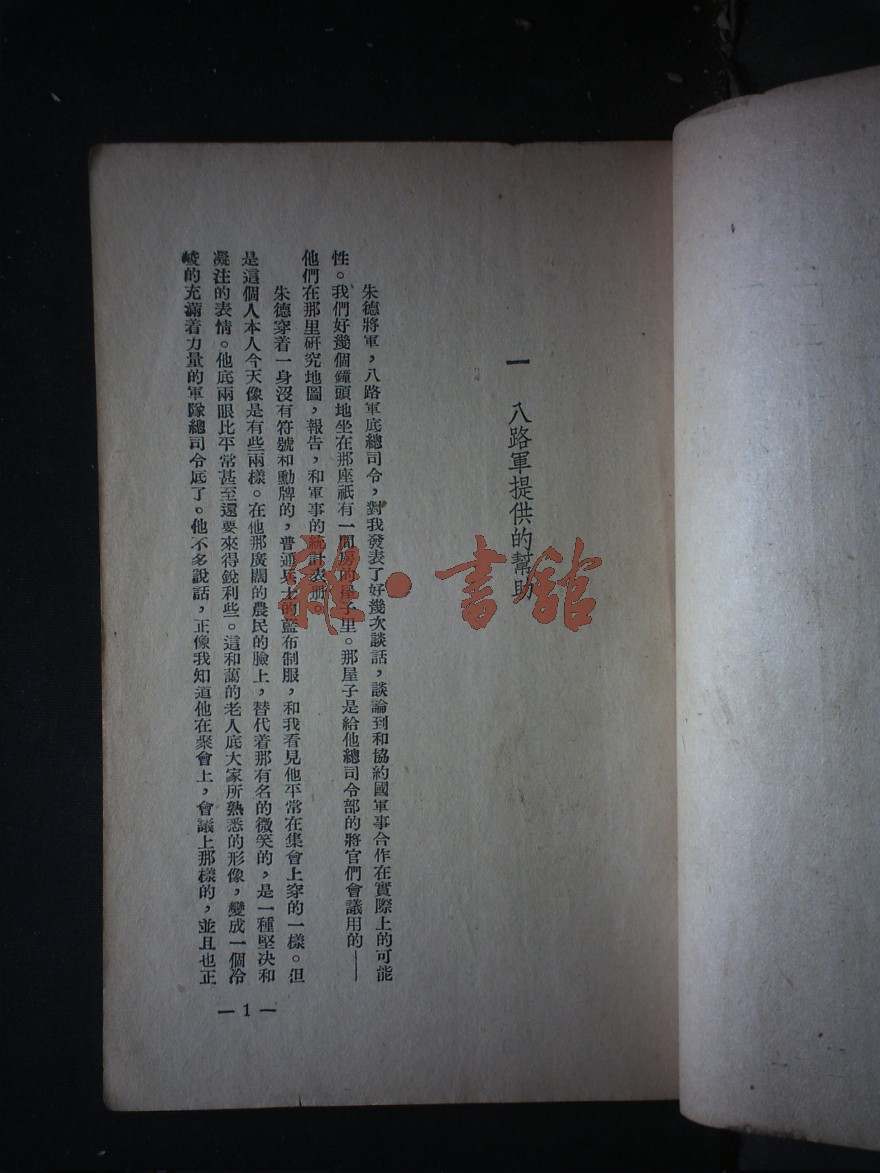 一 八路軍提供的幫助
朱德將軍，八路軍底總司令，對我發表了好幾次談話，談論到和協約國軍事合作在實際上的可能
性。我們好幾個鐘頭地坐在那座祇有一間房的屋子里。那屋子是給他總司令部的將官們會議用的——
他們在那里研究地圖，報告，和軍事的統計表册。
朱德穿着一身沒有符號和勳牌的，普通兵士的藍布制服，和我看見他平常在集會上穿的一樣。但
是這個人本人今天像是有些兩樣。在他那廣闊的農民的臉上，替代着那有名的微笑的，是一種堅决和
凝注的表情。他底兩眼比平常甚至還要來得銳利些。這和藹的老人底大家所熟悉的形像，變成一個冷
峻的充滿着力量的軍隊總司令底了。他不多說話，正像我知道他在聚會上，會議上那樣的，並且也正
— 1 —
雜·書館